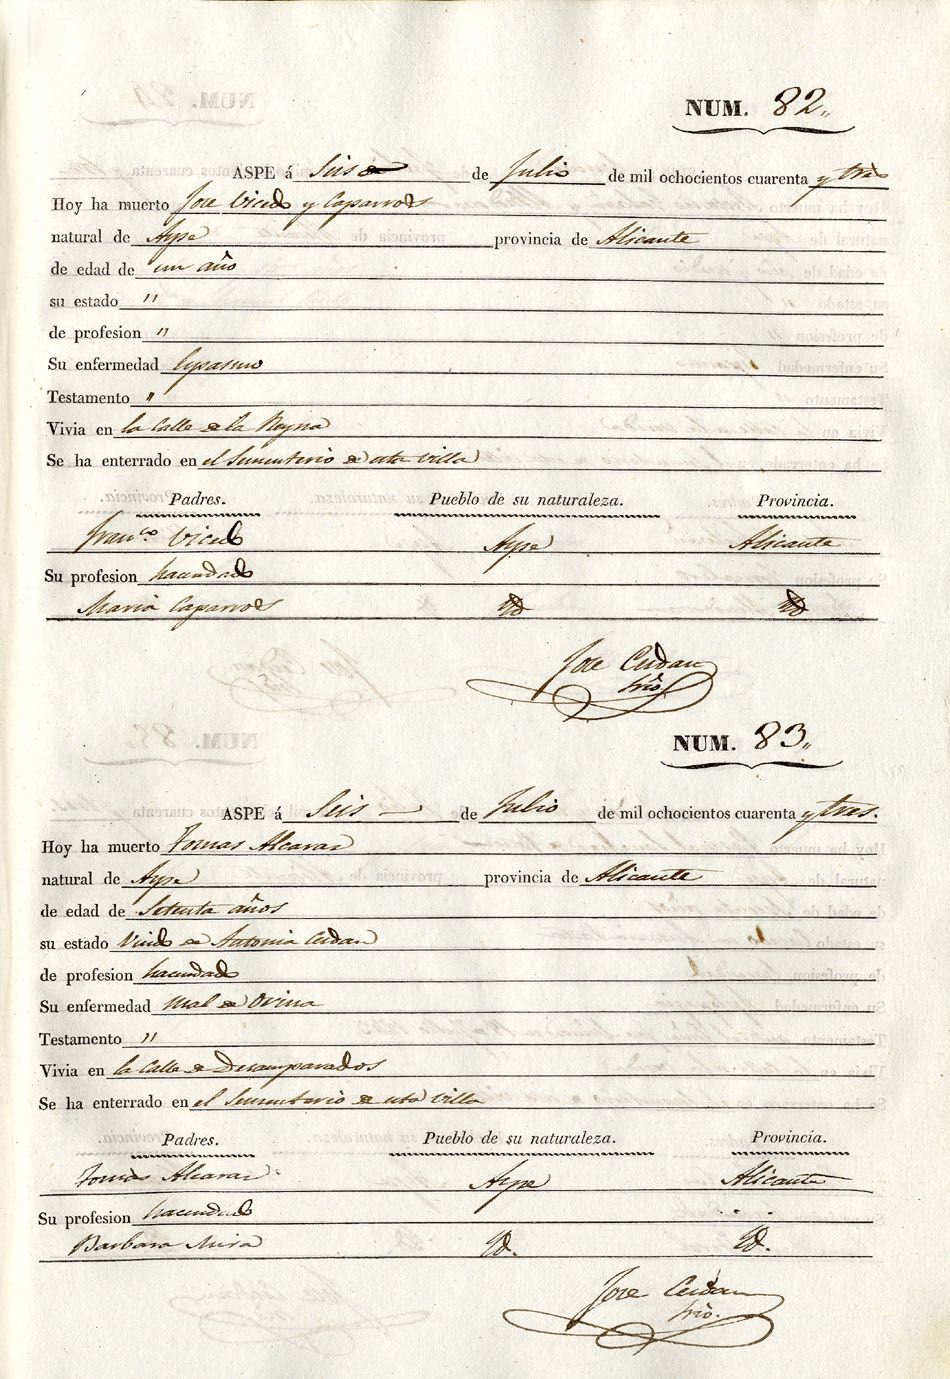 NUM. 82.,
ASPE á Seis de Julio de mil ochocientos cuarenta y tres
Hoy ha muerto Jose Vicedo y Caparros
natural de Aspe provincia de Alicante
de edad de un año
su estado "
de profesion "
Su enfermedad
Testamento "
Vivia en la Calle de la Reyna
Se ha enterrado en el Sementerio de esta villa
Padres. Pueblo de su naturaleza. Provincia.
Franco. Vicedo Aspe Alicante
Su profesion hacendado
Maria Caparros Yd Yd
Jose Cerdan
Srio.
NUM. 83.,
ASPE á Seis de Julio de mil ochocientos cuarenta y tres.
Hoy ha muerto Tomas Alcaraz
natural de Aspe provincia de Alicante
de edad de Setenta años
su estado Viudo de Antonia Cerdan
de profesion hacendado
Su enfermedad mal de orina
Testamento "
Vivia en la Calle de Desamparados
Se ha enterrado en el Sementerio de esta villa
Padres. Pueblo de su naturaleza. Provincia.
Tomás Alcaraz Aspe Alicante
Su profesion hacendado
Barbara Mira Yd. Yd.
Jose Cerdan
Srio.